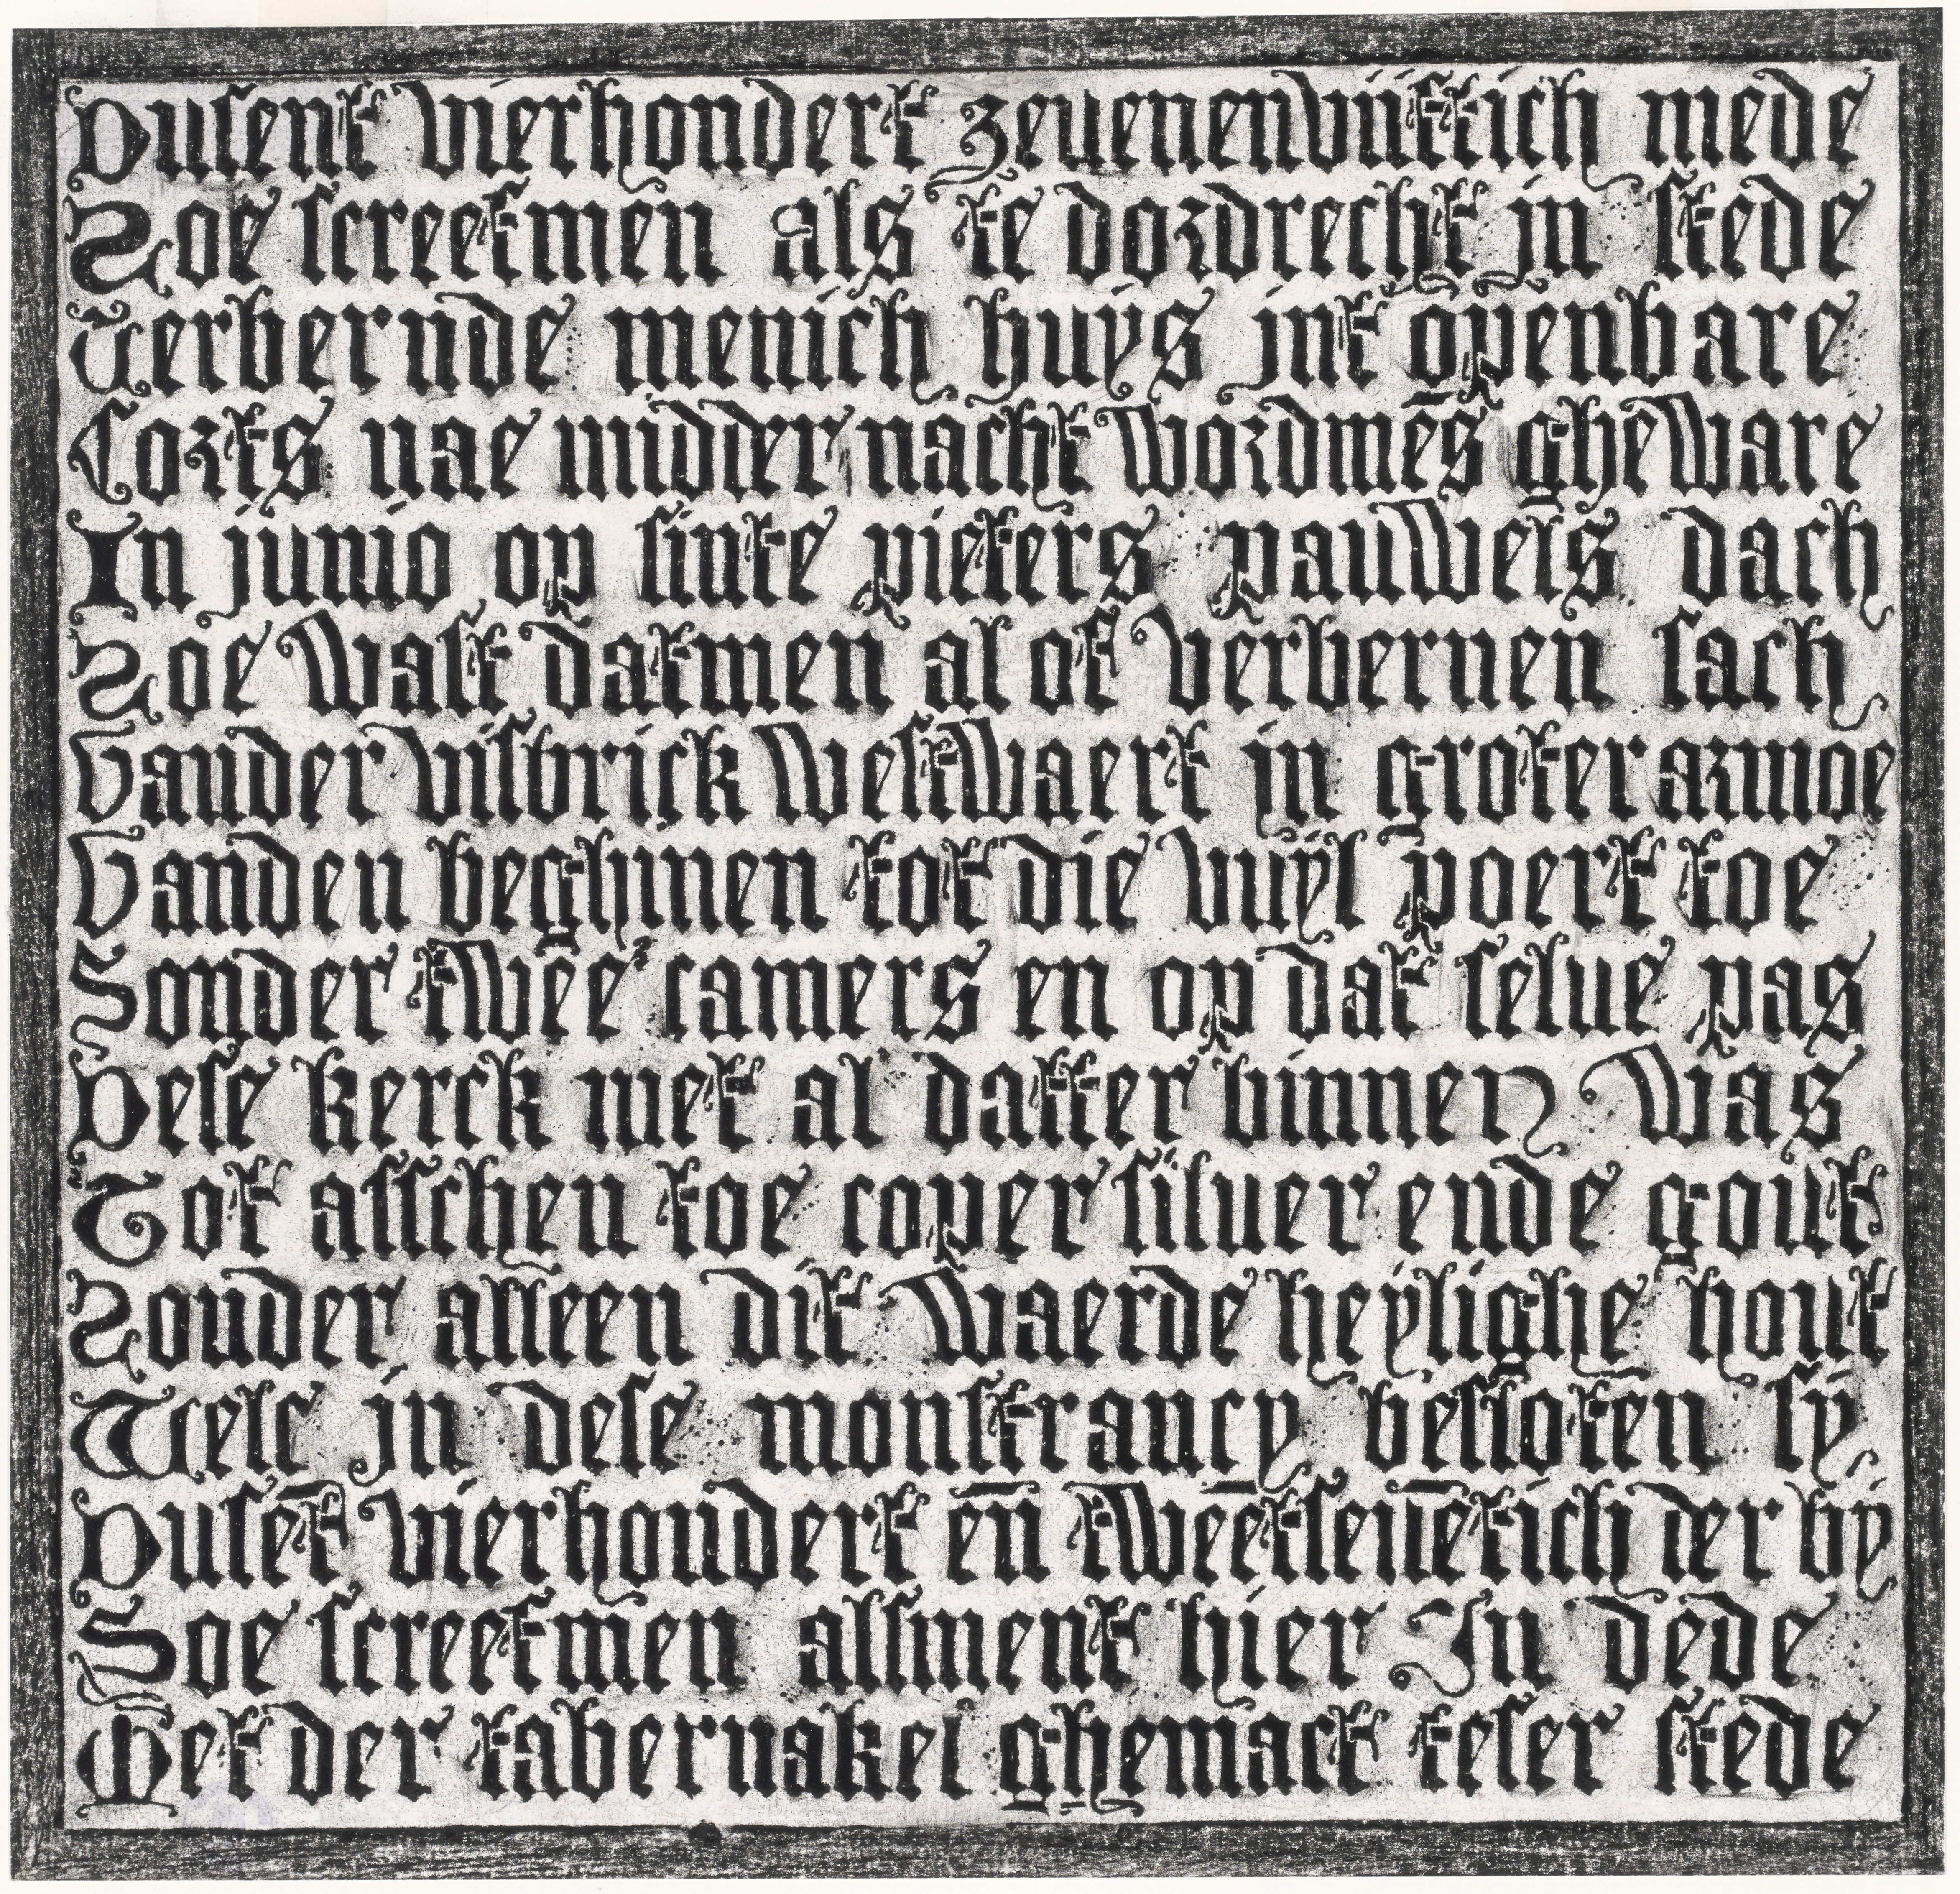 Dusent vierhondert zeuenenvijftich mede
Soe screefmen als te dordrecht in stede
Verbernde menich huys int openbare
Corts nae midder nacht wordmēs gheware
In junio op sinte pieters pauwels dach
Soe wast datmen al of verbernen sach
Vander visbrick westwaert in groter armoe
Vanden beghinen tot die vuyl poert toe
Sonder twee camers en op dat selue pas
Dese kerck met al datter binnen was
Tot asschen toe coper siluer ende gout
Sonder alleen dit waerde heylighe hout
Welc in dese monstrancy besloten sy
Dusēt vierhondert eñ tweetseuētich der by
Soe screefmen alsment hier In dede
Met der tabernakel ghemact teser stede